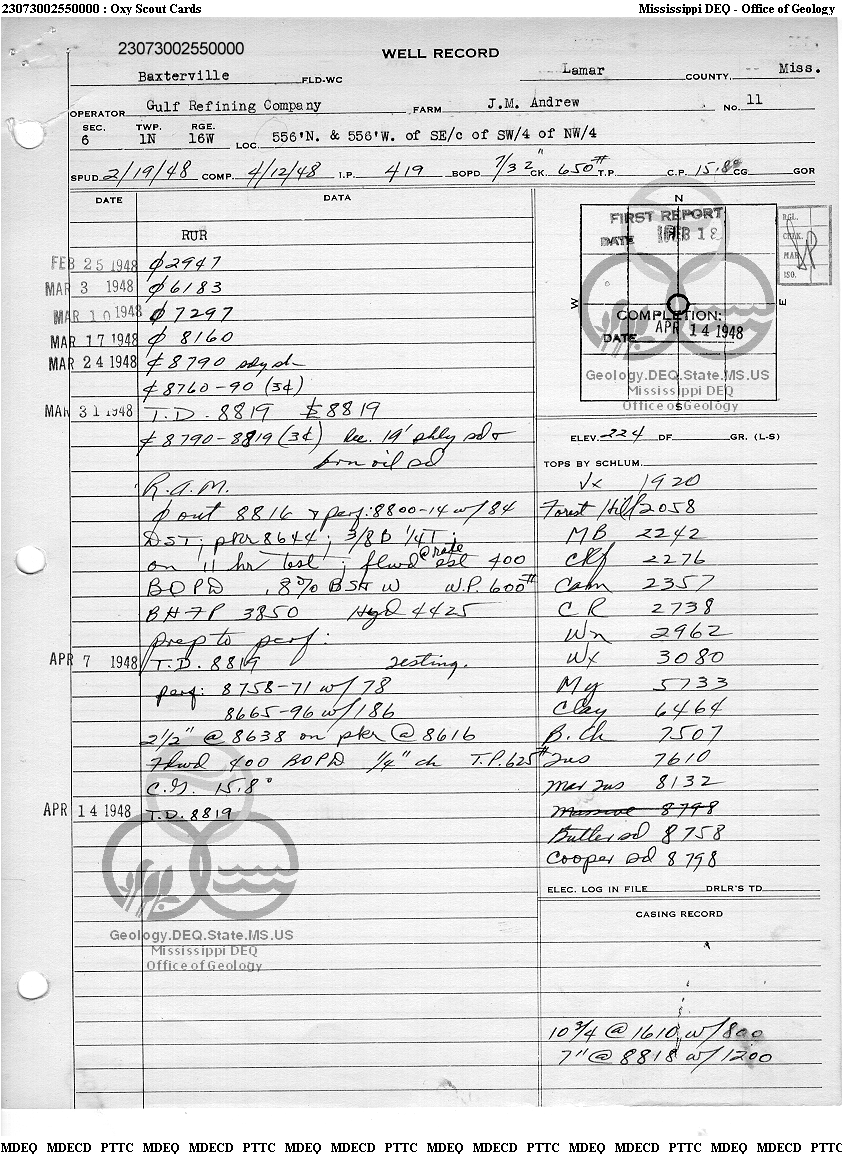 23073002550000 : Oxy Scout Cards
Mississippi DEQ - Office of Geology
23073002550000
WELL RECORD
Baxterville FLD-WC Lamar COUNTY, Miss.
OPERATOR Gulf Refining Company FARM J.M. Andrew No. 11
SEC. 6 TWP. 1N RGE. 16W LOC. 556'N. & 556'W. of SE/c of SW/4 of NW/4
SPUD 2/19/48 COMP. 4/12/48 I.P. 419 BOPD 7/32" CK. 650# T.P. C.P. 15.8° CG GOR
DATE DATA
RUR
FEB 25 1948 ϕ2947
MAR 3 1948 ϕ6183
MAR 10 1948 ϕ7297
MAR 17 1948 ϕ 8160
MAR 24 1948 ¢8790 sdy sh
¢ 8760-90 (3¢)
MAR 31 1948 T.D. 8819 8819
¢ 8790-8819 (3¢) Rec. 19' shly sd &
brn oil sd
R.A.M.
ϕ out 8816 & perf: 8800-14 w/84
DST; pkr 8644; 3/8B 1/4T;
on 11 hr test; flwd @ rate est 400
BOPD .8% BS&W W.P. 600#
BHFP 3850 Hyd 4425
prep to perf:
APR 7 1948 T.D. 8819 testing.
perf: 8758-71 w/78
8665-96 w/186
2 1/2" @ 8638 on pkr @ 8616
Flwd 400 BOPD 1/4" ch T.P. 625#
C.G. 15.8°
APR 14 1948 T.D. 8819
N
FIRST REPORT
DATE FEB 18
W E
COMPLETION:
DATE APR 14 1948
S
RGL.
CHK.
MAP
ISO.
Geology.DEQ.State.MS.US
Mississippi DEQ
Office of Geology
ELEV. 224 DF. GR. (L-S)
TOPS BY SCHLUM.
Vx 1920
Forest Hill 2058
MB 2242
Ckf 2276
Cam 2357
CR 2738
Wn 2962
Wx 3080
My 5733
Clay 6464
B. Ch 7507
Tus 7610
Mar Tus 8132
Massive 8798
Butler sd 8758
Cooper sd 8798
ELEC. LOG IN FILE DRLR'S TD
CASING RECORD
10 3/4 @ 1610 w/800
7" @ 8818 w/1200
Geology.DEQ.State.MS.US
Mississippi DEQ
Office of Geology
MDEQ MDECD PTTC MDEQ MDECD PTTC MDEQ MDECD PTTC MDEQ MDECD PTTC MDEQ MDECD PTTC MDEQ MDECD PTTC MDEQ MDECD PTTC